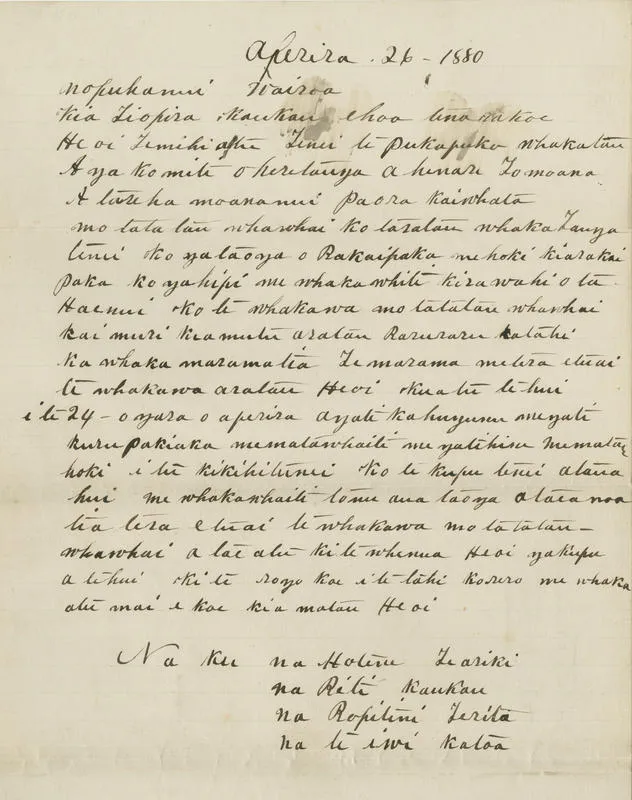 Aperira . 26 - 1880
nopukanui Wairoa
kia Tiopira Kaukau ehoa tena rakoe
Heoi Temihi atu Tenei te pukapuka whakatau
A ya komite o heretauya a henare Tomoana
A tareha moananui paora kaiwhata
mo tatatau whawhai ko tatatau whakaTauya
tenei ko yataoya o Rakaipaka me hoki kiarakai
paka ko yahipi me whakawhiti kirawahi o te
Haenui ko te whakawa mo tatatau whawhai
kai muri kiamutu aratau Raruraru katahi
ka whaka maramatia Temarama metera etuai
te whakawa aratau Heoi kuatu te hui
i te 24 - oyara o aperira ayati kahuyunu meyati
kurupakiaka mematawhaiti meyatihine Memata
hoki i te kikihitenei ko te kupu tenei ataua
hui me whakawhaiti tonu aua taoya ataea noa
tia tera etuai te whakawa mo tatatau -
whawhai a tae atu kite whenua Heoi yakupu
a tehui ki te royo koe i te tahi korero me whaka
atu mai e koe kia matau Heoi
Na ku na Hotene Teariki
na Reti kaukau
na Ropitini Terito
na te iwi katoa